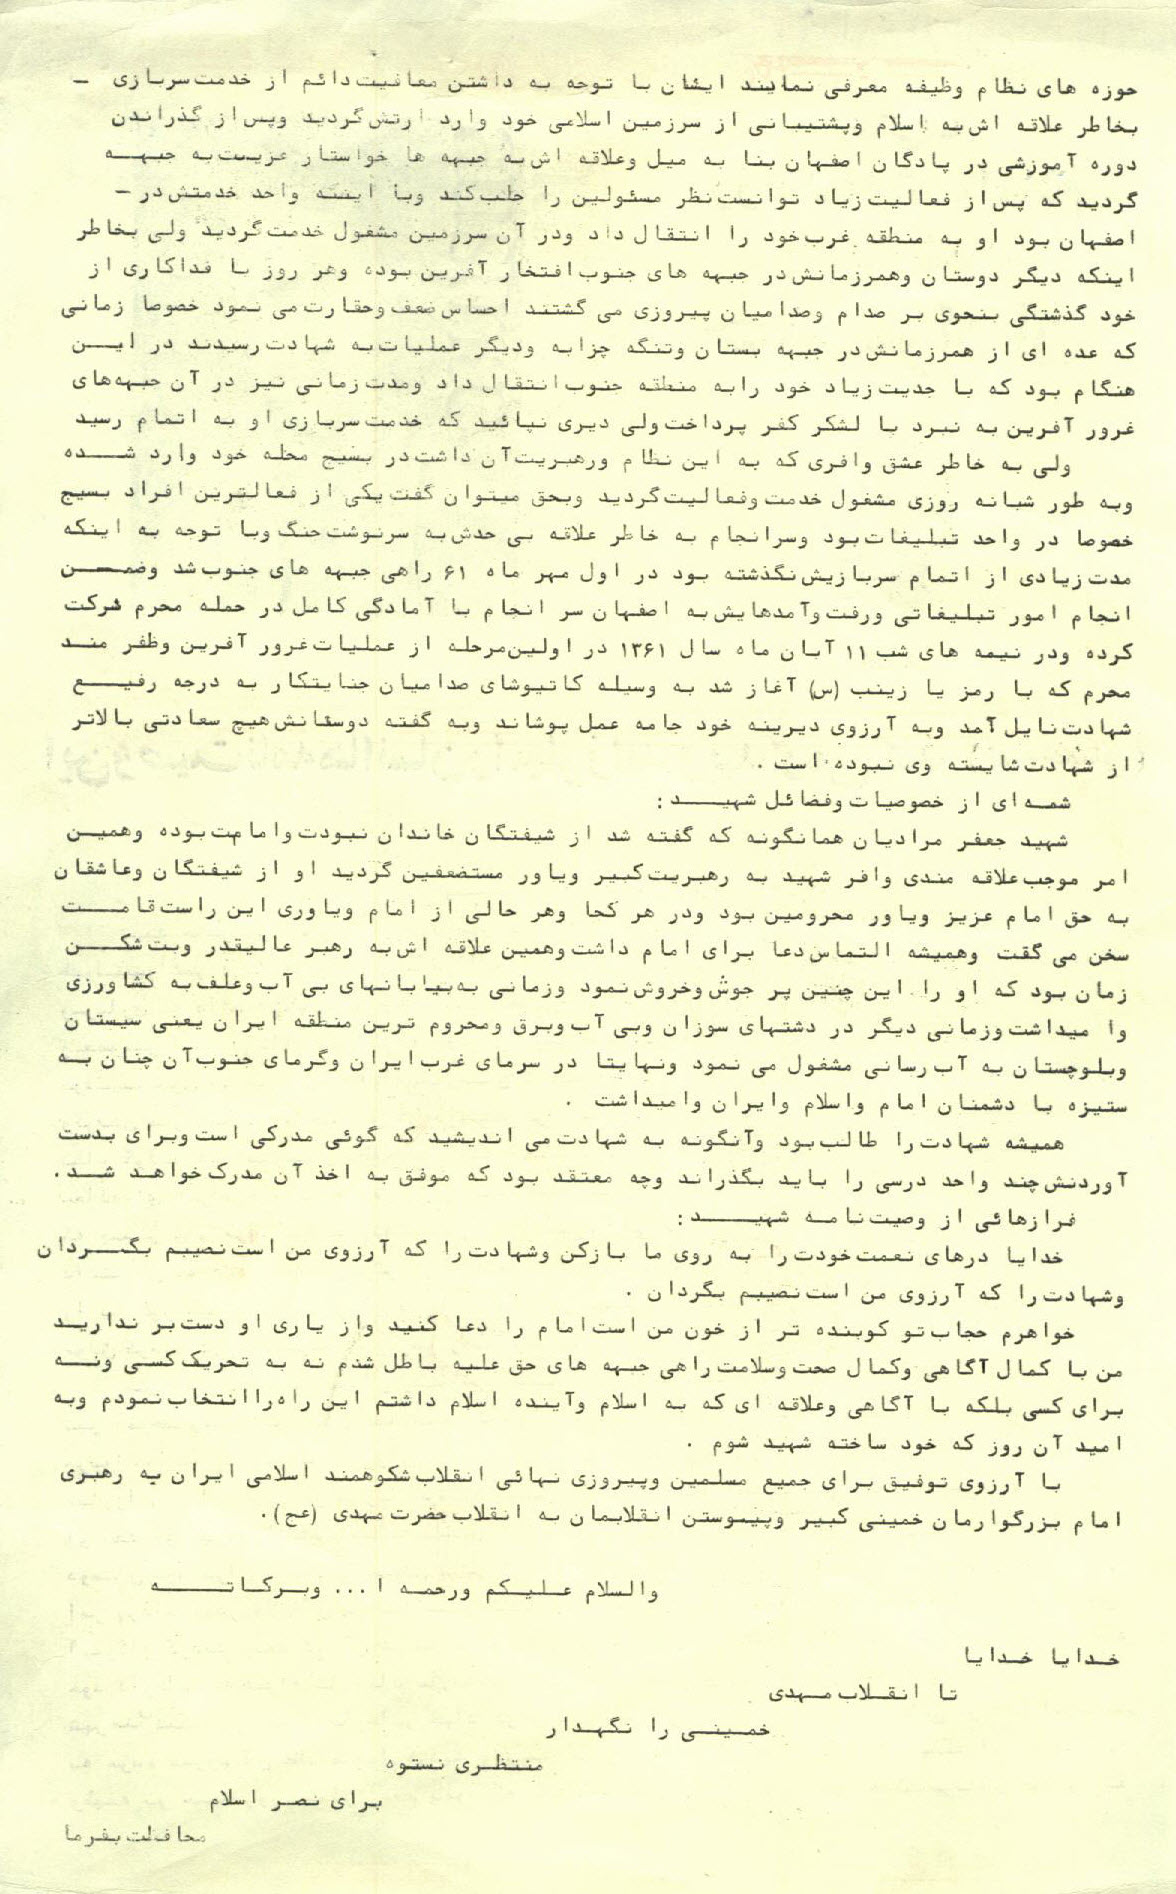 حوزه های نظام وظیفه معرفی نمایند ایشان با توجه به داشتن معافیت دائم از خدمت سربازی –
بخاطر علاقه اش به اسلام وپشتیبانی از سرزمین اسلامی خود وارد ارتش گردید وپس از گذراندن
دوره آموزشی در پادگان اصفهان بنا به میل وعلاقه اش به جبهه ها خواستار عزیمت به جبهــه
گردید که پس از فعالیت زیاد توانست نظر مسئولین را جلب کند وبا اینکه واحد خدمتش در –
اصفهان بود او به منطقه غرب خود را انتقال داد ودر آن سرزمین مشغول خدمت گردید ولی بخاطر
اینکه دیگر دوستان وهمرزمانش در جبهه های جنوب افتخار آفرین بوده وهر روز با فداکاری از
خود گذشتگی بنحوی بر صدام وصدامیان پیروزی می گشتند احساس ضعف وحقارت می نمود خصوصا زمانی
که عده ای از همرزمانش در جبهه بستان وتنگه چزابه ودیگر عملیات به شهادت رسیدند در ایــن
هنگام بود که با جدیت زیاد خود رابه منطقه جنوب انتقال داد ومدت زمانی نیز در آن جبهه های
غرور آفرین به نبرد با لشکر کفر پرداخت ولی دیری نپائید که خدمت سربازی او به اتمام رسید
ولی به خاطر عشق وافری که به این نظام ورهبریت آن داشت در بسیج محله خود وارد شــده
وبه طور شبانه روزی مشغول خدمت وفعالیت گردید وبحق میتوان گفت یکی از فعالترین افراد بسیج
خصوصا در واحد تبلیغات بود وسرانجام به خاطر علاقه بی حدش به سرنوشت جنگ وبا توجه به اینکه
مدت زیادی از اتمام سربازیش نگذشته بود در اول مهر ماه ۶۱ راهی جبهه های جنوب شد وضمــن
انجام امور تبلیغاتی ورفت وآمدهایش به اصفهان سر انجام با آمادگی کامل در حمله محرم شرکت
کرده ودر نیمه های شب ۱۱ آبان ماه سال ۱۳۶۱ در اولین مرحله از عملیات غرور آفرین وظفر منــد
محرم که با رمز یا زینب (س) آغاز شد به وسیله کاتیوشای صدامیان جنایتکار به درجه رفیــع
شهادت نایل آمد وبه آرزوی دیرینه خود جامه عمل پوشاند وبه گفته دوستانش هیچ سعادتی بالاتر
از شهادت شایسته وی نبوده است .
شمه ای از خصوصیات وفضائل شهیــد :
شهید جعفر مرادیان همانگونه که گفته شد از شیفتگان خاندان نبودت وامامت بوده وهمیــن
امر موجب علاقه مندی وافر شهید به رهبریت کبیر ویاور مستضعفین گردید او از شیفتگان وعاشقان
به حق امام عزیز ویاور محرومین بود ودر هر کجا وهر حالی از امام ویاوری این راست قامــت
سخن می گقت وهمیشه التماس دعا برای امام داشت وهمین علاقه اش به رهبر عالیقدر وبت شکــن
زمان بود که او را این چنین پر جوش وخروش نمود وزمانی به بیابانهای بی آب وعلف به کشاورزی
وا میداشت وزمانی دیگر در دشتهای سوزان وبی آب وبرق ومحروم ترین منطقه ایران یعنی سیستان
وبلوچستان به آب رسانی مشغول می نمود ونهایتا در سرمای غرب ایران وگرمای جنوب آن چنان به
ستیزه با دشمنان امام واسلام وایران وامیداشت .
همیشه شهادت را طالب بود وآنگونه به شهادت می اندیشید که گوئی مدرکی است وبرای بدست
آوردنش چند واحد درسی را باید بگذراند وچه معتقد بود که موفق به اخذ آن مدرک خواهد شــد .
فرازهائی از وصیت نامه شهیــد :
خدایا درهای نعمت خودت را به روی ما بازکن وشهادت را که آرزوی من است نصیبم بگــردان
وشهادت را که آرزوی من است نصیبم بگردان .
خواهرم حجاب تو کوبنده تر از خون من است امام را دعا کنید واز یاری او دست بر نداریــد
من با کمال آگاهی وکمال صحت وسلامت راهی جبهه های حق علیه باطل شدم نه به تحریک کسی ونــه
برای کسی بلکه با آگاهی وعلاقه ای که به اسلام وآینده اسلام داشتم این راه را انتخاب نمودم وبه
امید آن روز که خود ساخته شهید شوم .
با آرزوی توفیق برای جمیع مسلمین وپیروزی نهائی انقلاب شکوهمند اسلامی ایران به رهبری
امام بزرگوارمان خمینی کبیر وپیوستن انقلابمان به انقلاب حضرت مهدی (عج).
والسلام علیکم ورحمه ا ... وبرکاتــه
خدایا خدایا
تا انقلاب مهدی
خمینی را نگهدار
منتظری نستوه
برای نصر اسلام
محافظت بفرما